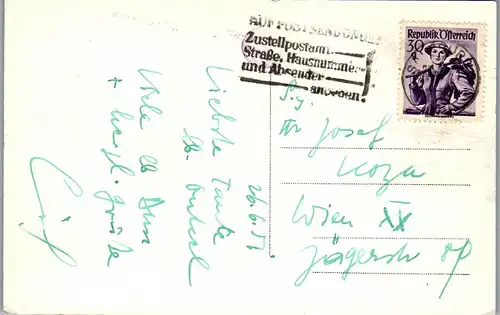 AUF POSTSENDUNGEN
Zustellpostamt
Straße, Hausnummer
und Absender
angeben!
Republik Österreich
30
26.6.51
Liebste Tante
lb. Onkel
Viele lb
+ herzl. Grüße
S.g.
Josef
Koza
Wien XX
Jägerstr